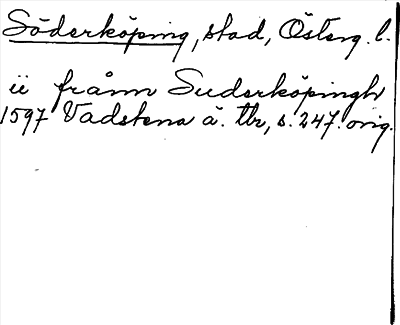 Söderköping, stad, Österg. l.
ii frånn Suderköpingh
1597 Vadstena ä. tbr, s. 247. orig.